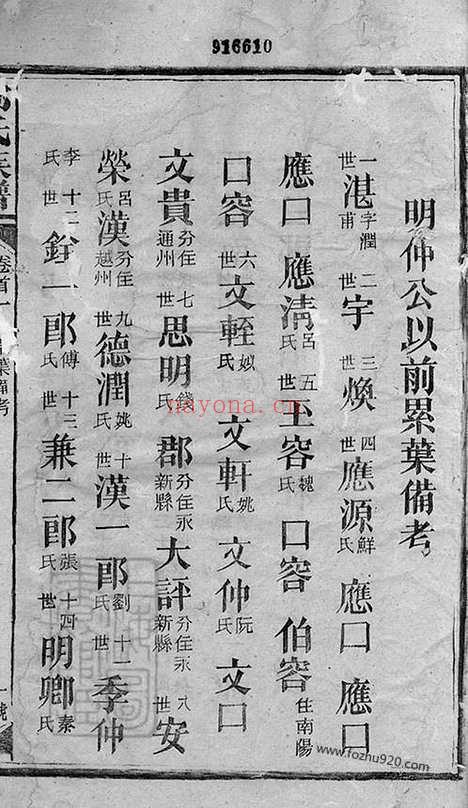 916610
明仲公以前累葉備考
一世湛字潤甫 二世宇 三世煥 四世應源鮮氏 應口 應口
應口 應清呂氏 五世玉容魏氏 口容 伯容住南陽
口容 六世文輊姒氏 文軒姚氏 文仲阮氏 文口
文貴分住通州 七世思明錢氏 郡分住永新縣 大評分住永新縣 八世安
榮呂氏 漢分住越州 九世德潤姚氏 十世漢一郎劉氏 十一世季仲
李氏 十二世 一郎傅氏 十三世兼二郎張氏 十四世明卿秦氏
氏族譜
卷首一
葉備考
一號
nayona.cn
www.fozhu920.com